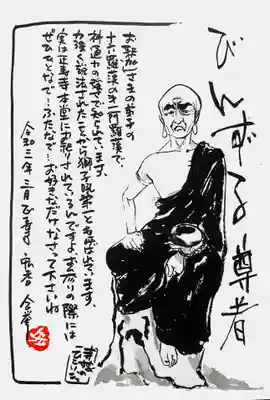 びんずる尊者
お釈迦さまの弟子の
十六羅漢の第一阿羅漢で、
神通力の強さで知られています。
力強く説法されたことから獅子吼第一とも呼ばれています。
実は正寿寺本堂にお祀りされているんですよ。お参りの際には
ぜひひとなで…ふたなで…お好きなだけなさって下さいね
令和二年三月 正寿寺
合掌